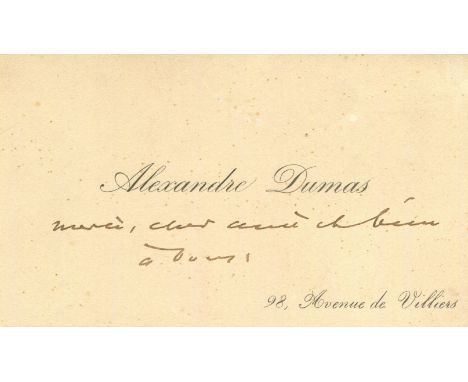 Alexandre Dumas
merci, cher ami et bien
à vous.
98, Avenue de Villiers